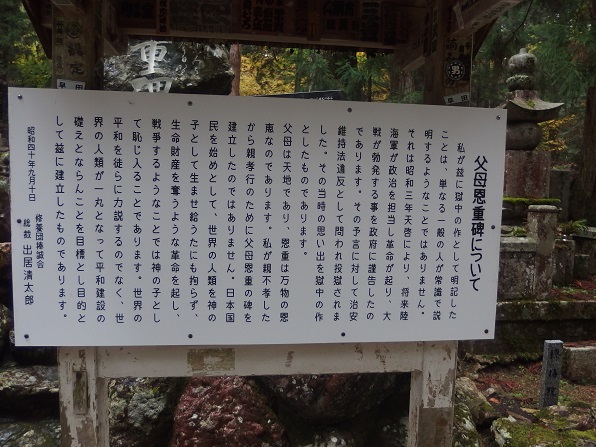 父母恩重碑について
私が茲に獄中の作として明記した
ことは、単なる一般の人が常識で説
明するようなことではありません。
それは昭和三年天啓により、将来陸
海軍が政治を担当し革命が起り、大
戦が勃発する事を政府に謹告したの
であります。その予言に対して治安
維持法違反として問われ投獄されま
した。その当時の思い出を獄中の作
としたものであります。
父母は天地であり、恩重は万物の恩
恵なのであります。私が親不孝した
から親孝行のために父母恩重の碑を
建立したのではありません。日本国
民を始めとして、世界の人類を神の
子として生ませ給うたにも拘らず、
生命財産を奪うような革命を起し、
戦争するようなことでは神の子とし
て恥じ入ることであります。世界の
平和を徒らに力説するのでなく、世
界の人類が一丸となって平和建設の
礎えとならんことを目標とし目的と
して茲に建立したものであります。
昭和四十年九月十日
修養団捧誠会
総裁 出居清太郎
重